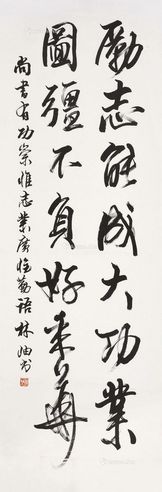 勵志能成大功業
圖彊不負好年華
尚書有功崇惟志業廣惟勤語 林油書